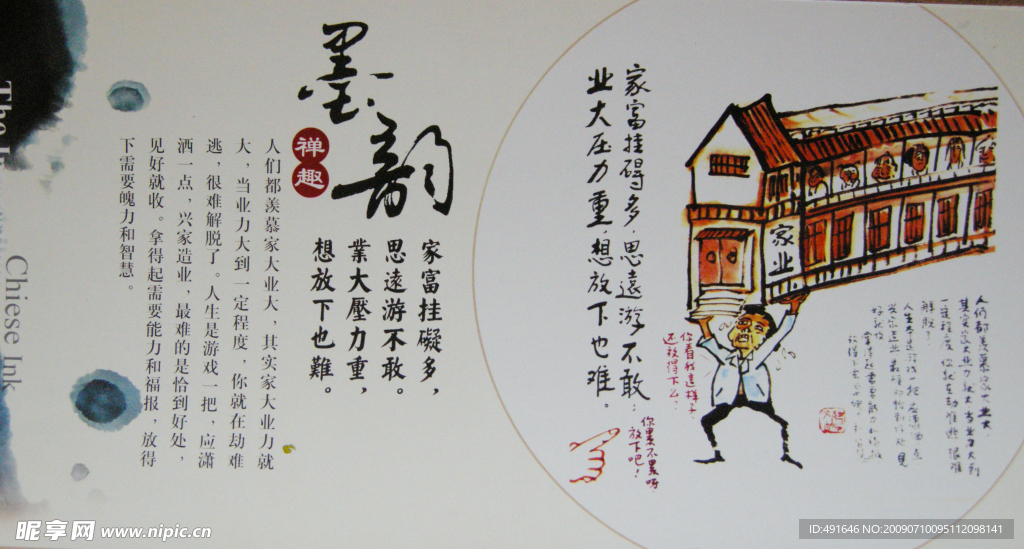 墨韵
禅趣
家富挂礙多，
思遠游不敢。
業大壓力重，
想放下也難。
人们都羡慕家大业大，其实家大业力就
大，当业力大到一定程度，你就在劫难
逃，很难解脱了。人生是游戏一把，应潇
洒一点，兴家造业，最难的是恰到好处，
见好就收。拿得起需要能力和福报，放得
下需要魄力和智慧。
Chiese Ink
家富挂碍多，思遠游不敢；
业大压力重，想放下也难。
家业
你看我这样子
还放得下么？
你累不累呀
放下吧！
人们都羡慕家大业大，
昵享网 www.nipic.cn
ID:491646 NO:20090710095112098141